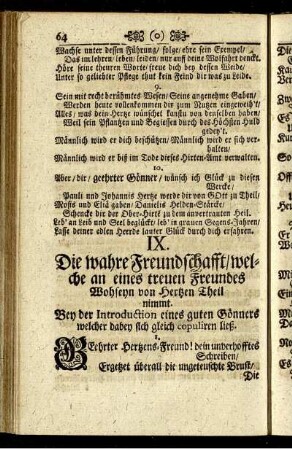 64 (o)
Wachse unter dessen Führung/ folge/ ehre sein Exempel/
Das im lehren/ leben/ leiden/ nur auf deine Wolfahrt dencket.
Höre seine theuren Worte/ freue dich bey dessen Weide/
Unter so geliebter Pflege thut kein Feind dir was zu Leide.
9.
Sein mit recht berühmtes Wesen/ Seine angenehme Gaben/
Werden heute vollenkommen dir zum Nutzen eingeweyh't/
Alles/ was dein Hertze wünschet kanstu von denselben haben/
Weil sein Pflantzen und Begiessen durch des Höchsten Huld
gedey't.
Männlich wird er dich beschützen/ Männlich wird er sich ver-
halten/
Männlich wird er biß im Tode dieses Hirten-Amt verwalten.
10.
Aber/ dir/ geehrter Gönner/ wünsch ich Glück zu diesen
Wercke/
Pauli und Johannis Hertze werde dir von GOtt zu Theil/
Mosis und Eliä gaben/ Danielis Helden-Stärcke/
Schencke dir der Ober-Hirte zu dem anvertrauten Heil.
Leb' an Leib und Seel beglückt/ leb' in grauen Segens-Jahren/
Lasse deiner edlen Heerde lauter Glück durch dich erfahren.
IX.
Die wahre Freundschafft/ wel-
che an eines treuen Freundes
Wohseyn von Hertzen Theil
nimmt.
Bey der Introduction eines guten Gönners
welcher dabey sich gleich copuliren ließ.
1.
GEehrter Hertzens-Freund! dein unverhofftes
Schreiben/
Ergetzet überall die ungeteuschte Brust/
Die